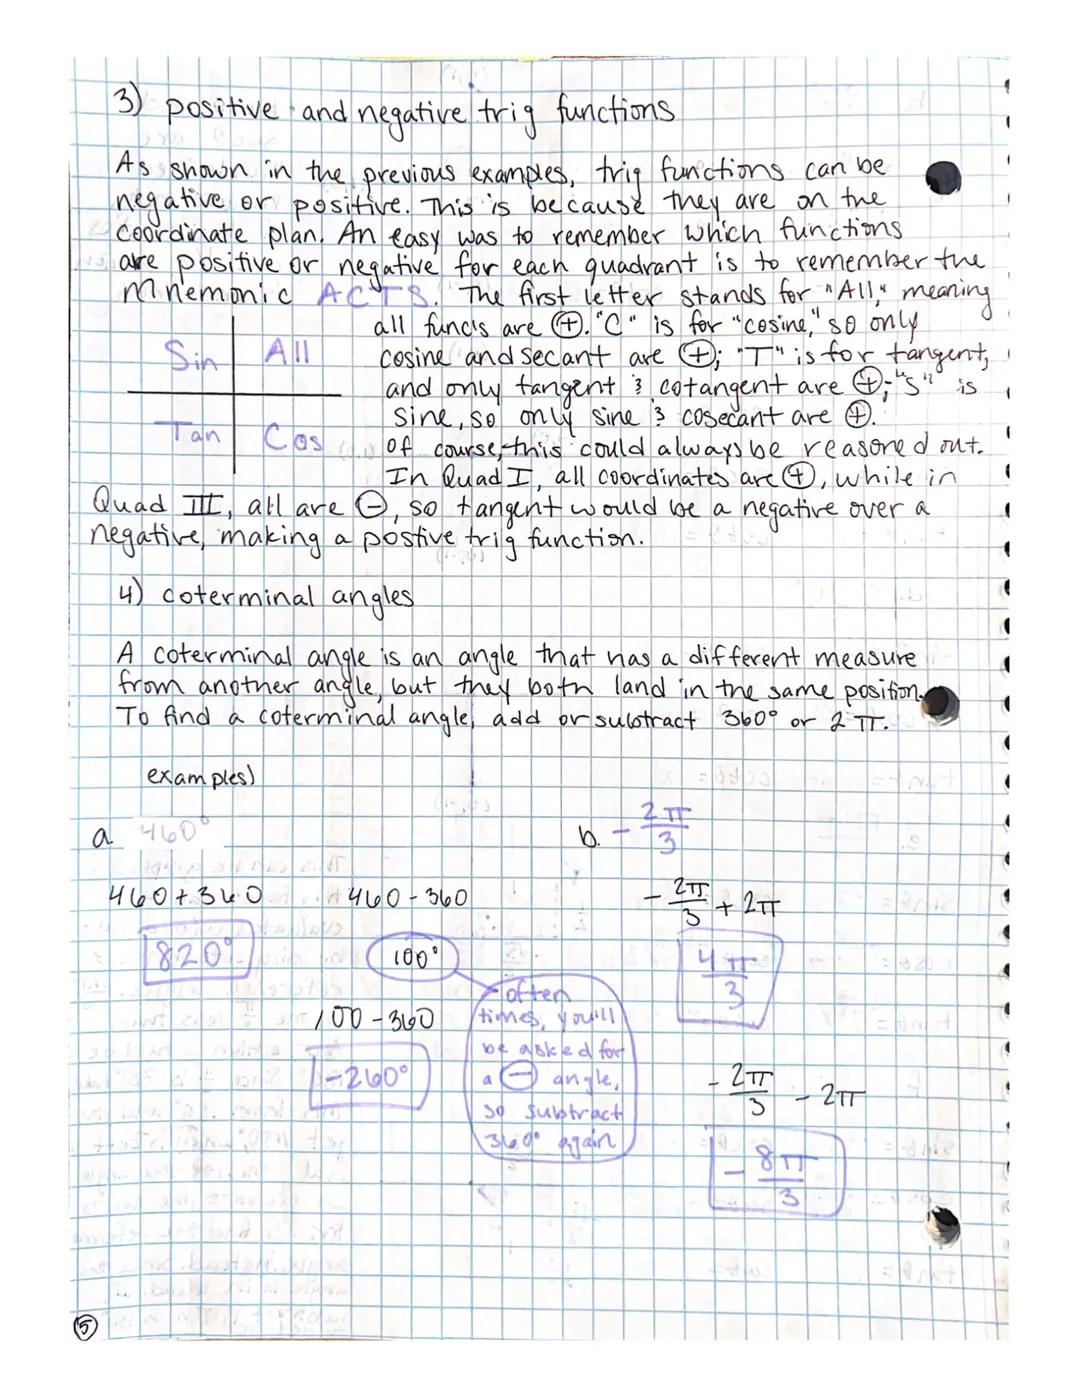 3) positive and negative trig functions
As shown in the previous examples, trig functions can be
negative or positive. This is because they are on the
coordinate plan. An easy was to remember which functions
are positive or negative for each quadrant is to remember the
Mnemonic ACTS. The first letter stands for "All," meaning
all func's are ⊕. "C" is for "cosine," so only
Sin All
cosine and secant are ⊕; "T" is for tangent,
and only tangent & cotangent are ⊕; "S" is
sine, so only sine & cosecant are ⊕.
Tan Cos
Of course, this could always be reasoned out.
In Quad I, all coordinates are ⊕, while in
Quad III, all are ⊖, so tangent would be a negative over a
negative, making a postive trig function.
4) coterminal angles
A coterminal angle is an angle that has a different measure
from another angle, but they both land in the same position.
To find a coterminal angle, add or subtract 360° or 2π.
examples)
a. 460°
460 + 360
820°
460 - 360
100°
100 - 360
-260°
often
times, you'll
be asked for
a ⊖ angle,
so subtract
360° again
b. -2π/3
-2π/3 + 2π
4π/3
-2π/3 - 2π
-8π/3
5